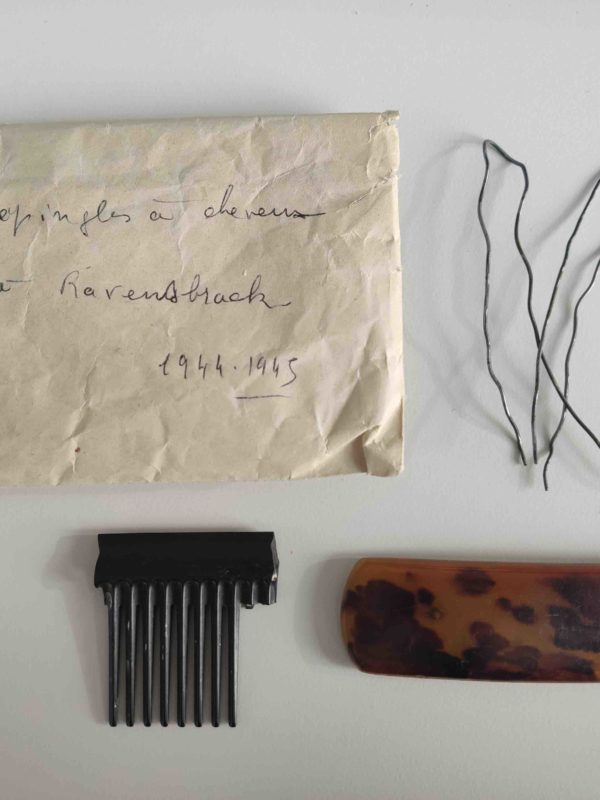 epingles à cheveux
à Ravensbruck
1944.1945